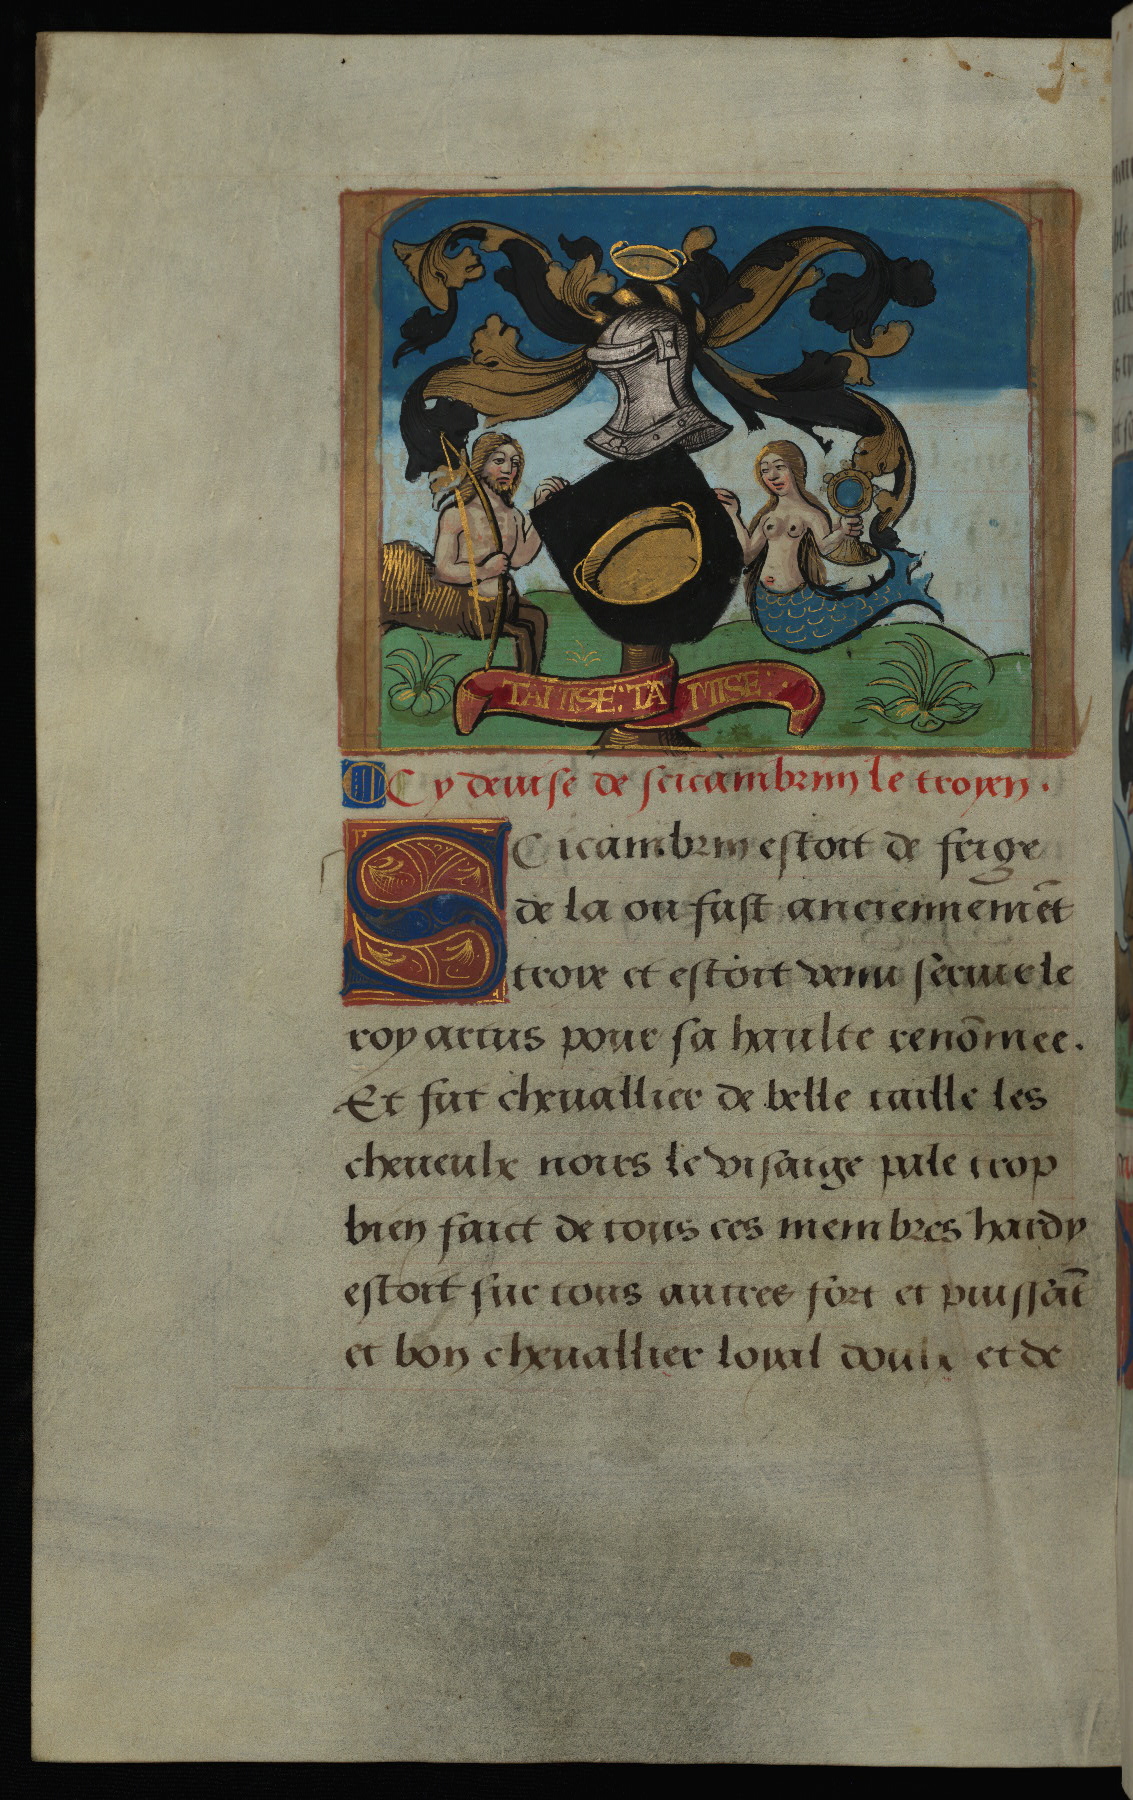 TAMISE: TA MISE:
Cy deuise de scicambrin le troyen.
SCicambrin estoit de frige
de la ou fust anciennemēt
troie et estoit venu seruir le
roy artus pour sa haulte renōmee.
Et fut cheuallier de belle taille les
cheueulx noirs le visaige pale trop
bien faict de tous ces membres hardy
estoit sur tous autres fort et puissāt
et bon cheuallier loyal doulx et de